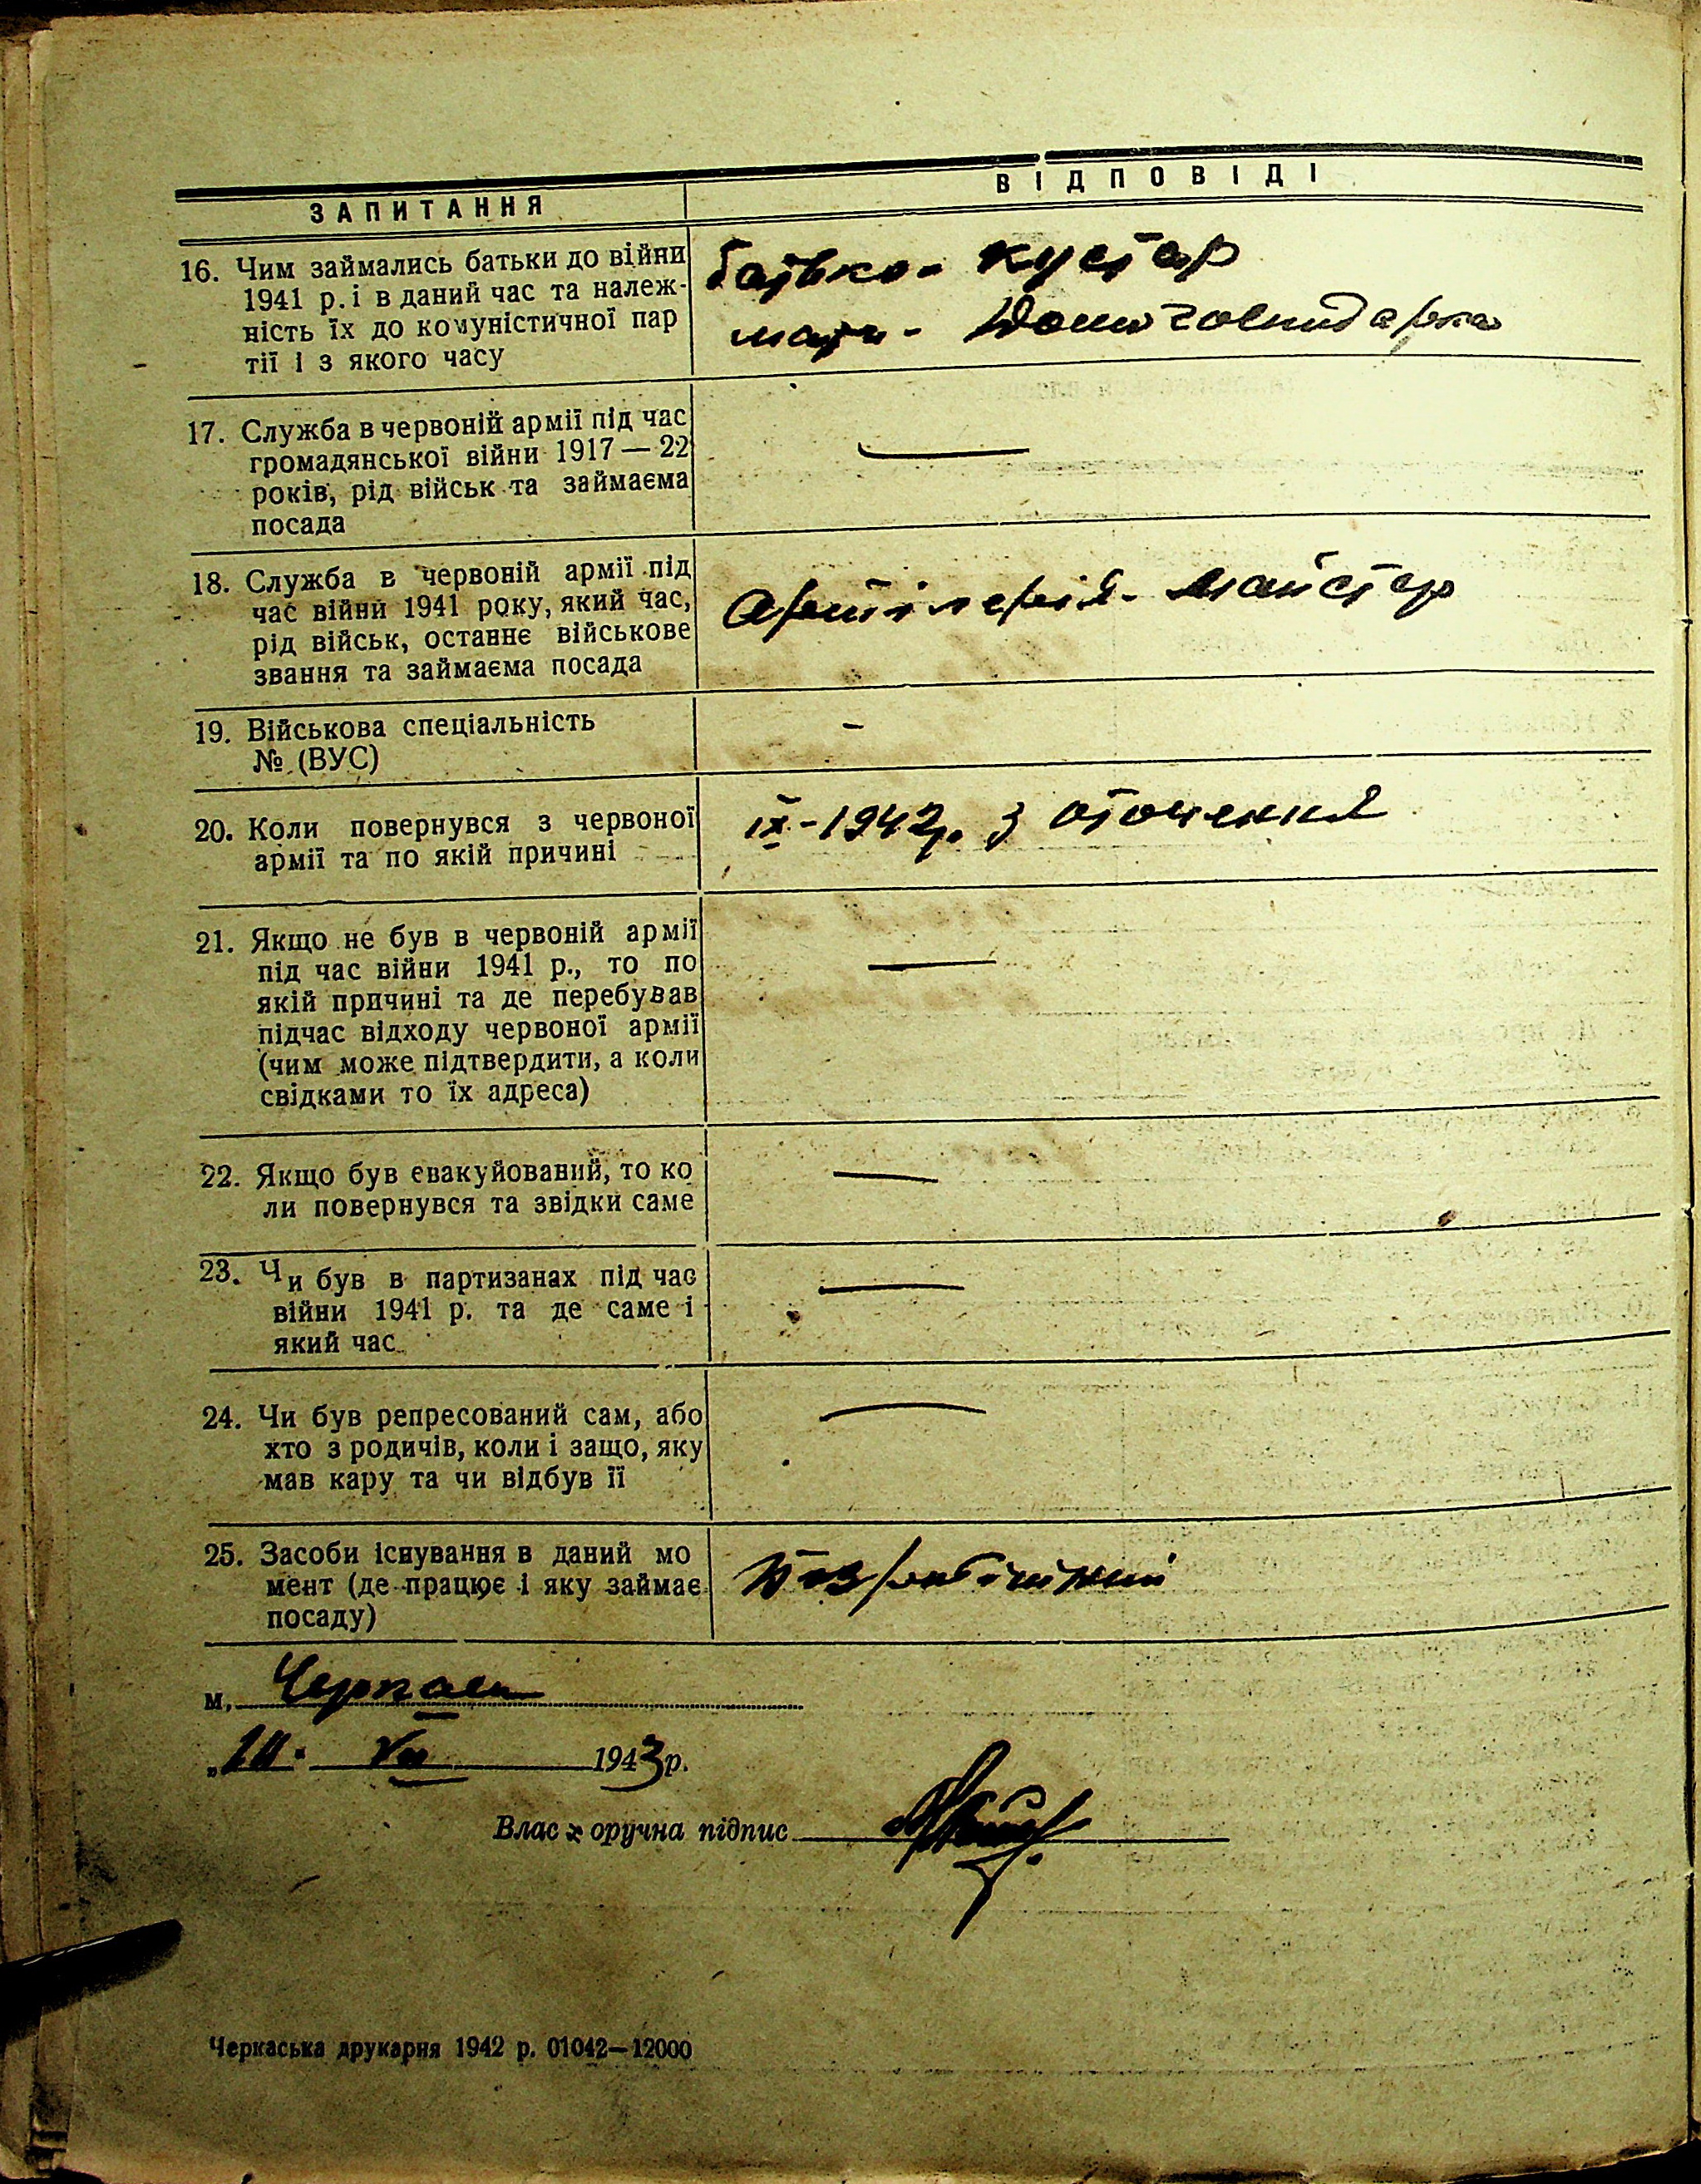 ЗАПИТАННЯ
ВІДПОВІДІ
16. Чим займались батьки до війни
1941 р. і в даний час та належ-
ність їх до комуністичної пар
тії і з якого часу
батько - кустар
мати - домогосподарка
17. Служба в червоній армії під час
громадянської війни 1917 — 22
років, рід військ та займаєма
посада
—
18. Служба в червоній армії під
час війни 1941 року, який час,
рід військ, останнє військове
звання та займаєма посада
Артілерія - майстер
19. Військова спеціальність
№ (ВУС)
-
20. Коли повернувся з червоної
армії та по якій причині
ІХ - 1942р. з оточення
21. Якщо не був в червоній армії
під час війни 1941 р., то по
якій причині та де перебував
підчас відходу червоної армії
(чим може підтвердити, а коли
свідками то їх адреса)
—
22. Якщо був евакуйований, то ко
ли повернувся та звідки саме
—
23. Чи був в партизанах під час
війни 1941 р. та де саме і
який час
—
24. Чи був репресований сам, або
хто з родичів, коли і защо, яку
мав кару та чи відбув її
—
25. Засоби існування в даний мо
мент (де працює і яку займає
посаду)
Безробітний
м. Черкаси
VII 1943 р.
Влас оручна підпис
Черкаська друкарня 1942 р. 01042—12000